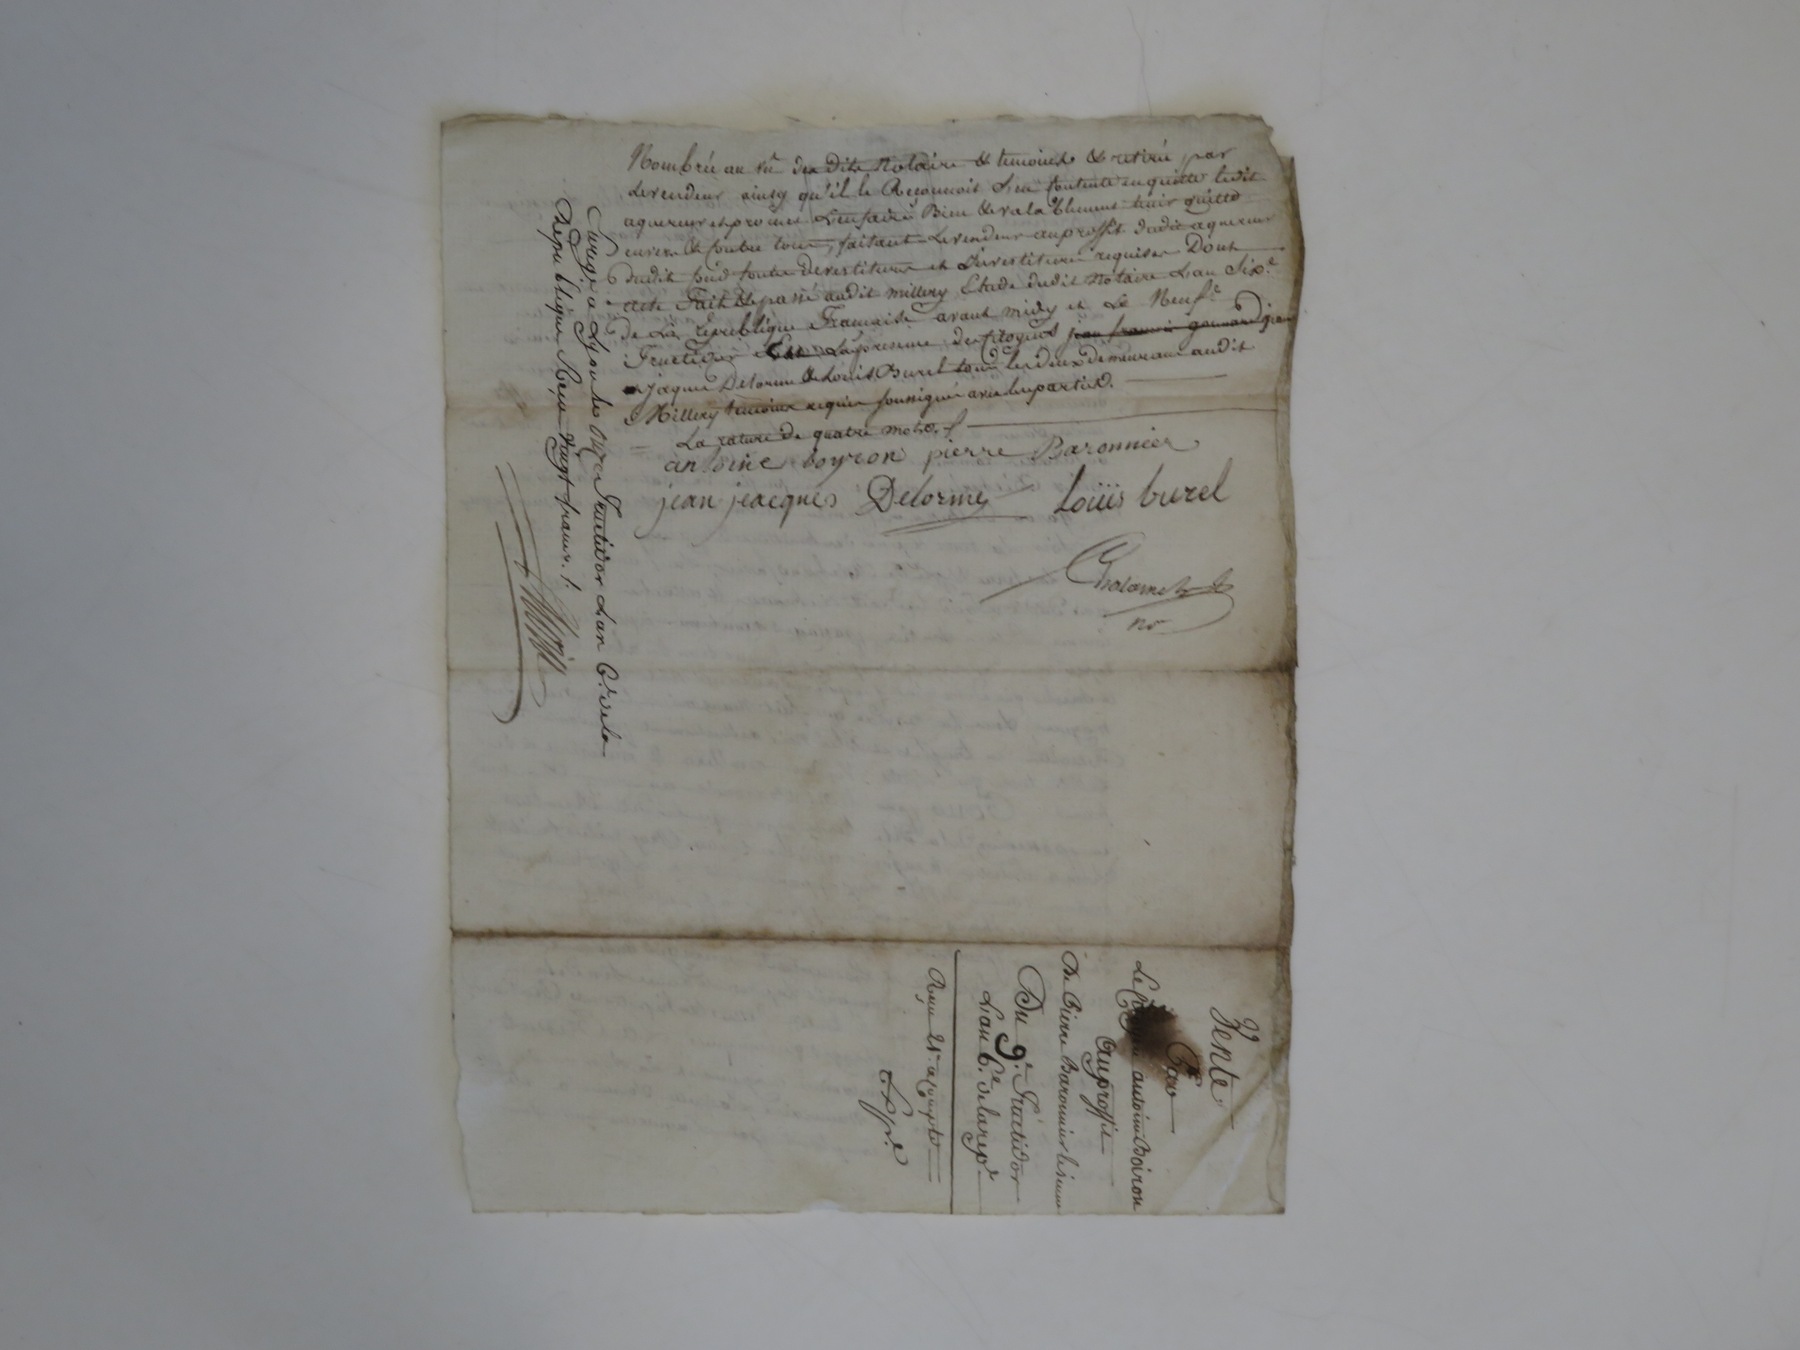 Nombreé au vu desdits Notaire & temoins & retiré par
Le vendeur ainsy qu'il le Reconnoit S'en Contente en quitte ledit
aquereur et promet L'en faire Bien & valablement tenir quitte
envers & Contre tous, faisant Le vendeur au proffit dudit aquereur
dudit fond toutes devestitures et Investitures requises Dont
acte Fait & passé audit millery Etude dudit Notaire L'an Six.e
de La republique Francaise avant midy et Le Neuf.e
Fructidor En La presence des Citoyens jean francois gonnard jean
jaques Delorme & Louis Burel tous les deux demeurant audit
Millery temoins requis soussignés avec les parties.
La rature de quatre mots. /.
antoine boyron pierre Baronnier
jean jeacques Delorme Loüis burel
no.re
Enregé a Lyon les Onze Fructidor Lan 6.e de la
Republique Reçu vingt francs. /.
Vente
Par
Le Citoyen antoine Boiron
au proffit
De Pierre Baronnier
Du 9.e Fructidor
L'an 6.e de la rep.e
Reçu 21.# acompte